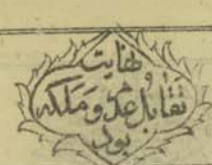 نهایت
تقابل عدم و ملکه
بود